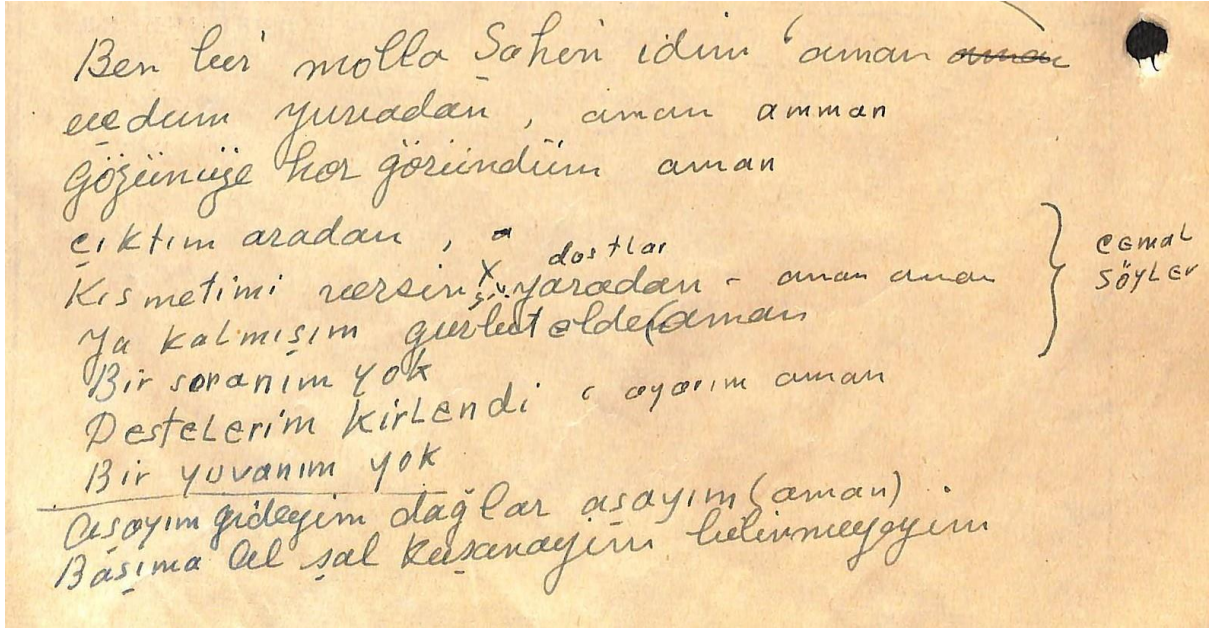 Ben bir molla Şahin idim aman aman
uçdum yuvadan, aman amman
Gözünüze hor göründüm aman
çıktım aradan,
dostlar
Kısmetimi versin yaradan - aman aman
Ya kalmışım gurbet elde (aman
Bir soranım yok
Destelerim Kirlendi aman
Bir yuvanım yok
aşayım gideyim dağlar aşayım (aman).
Başıma al şal kuşanayım
cemal
söyler